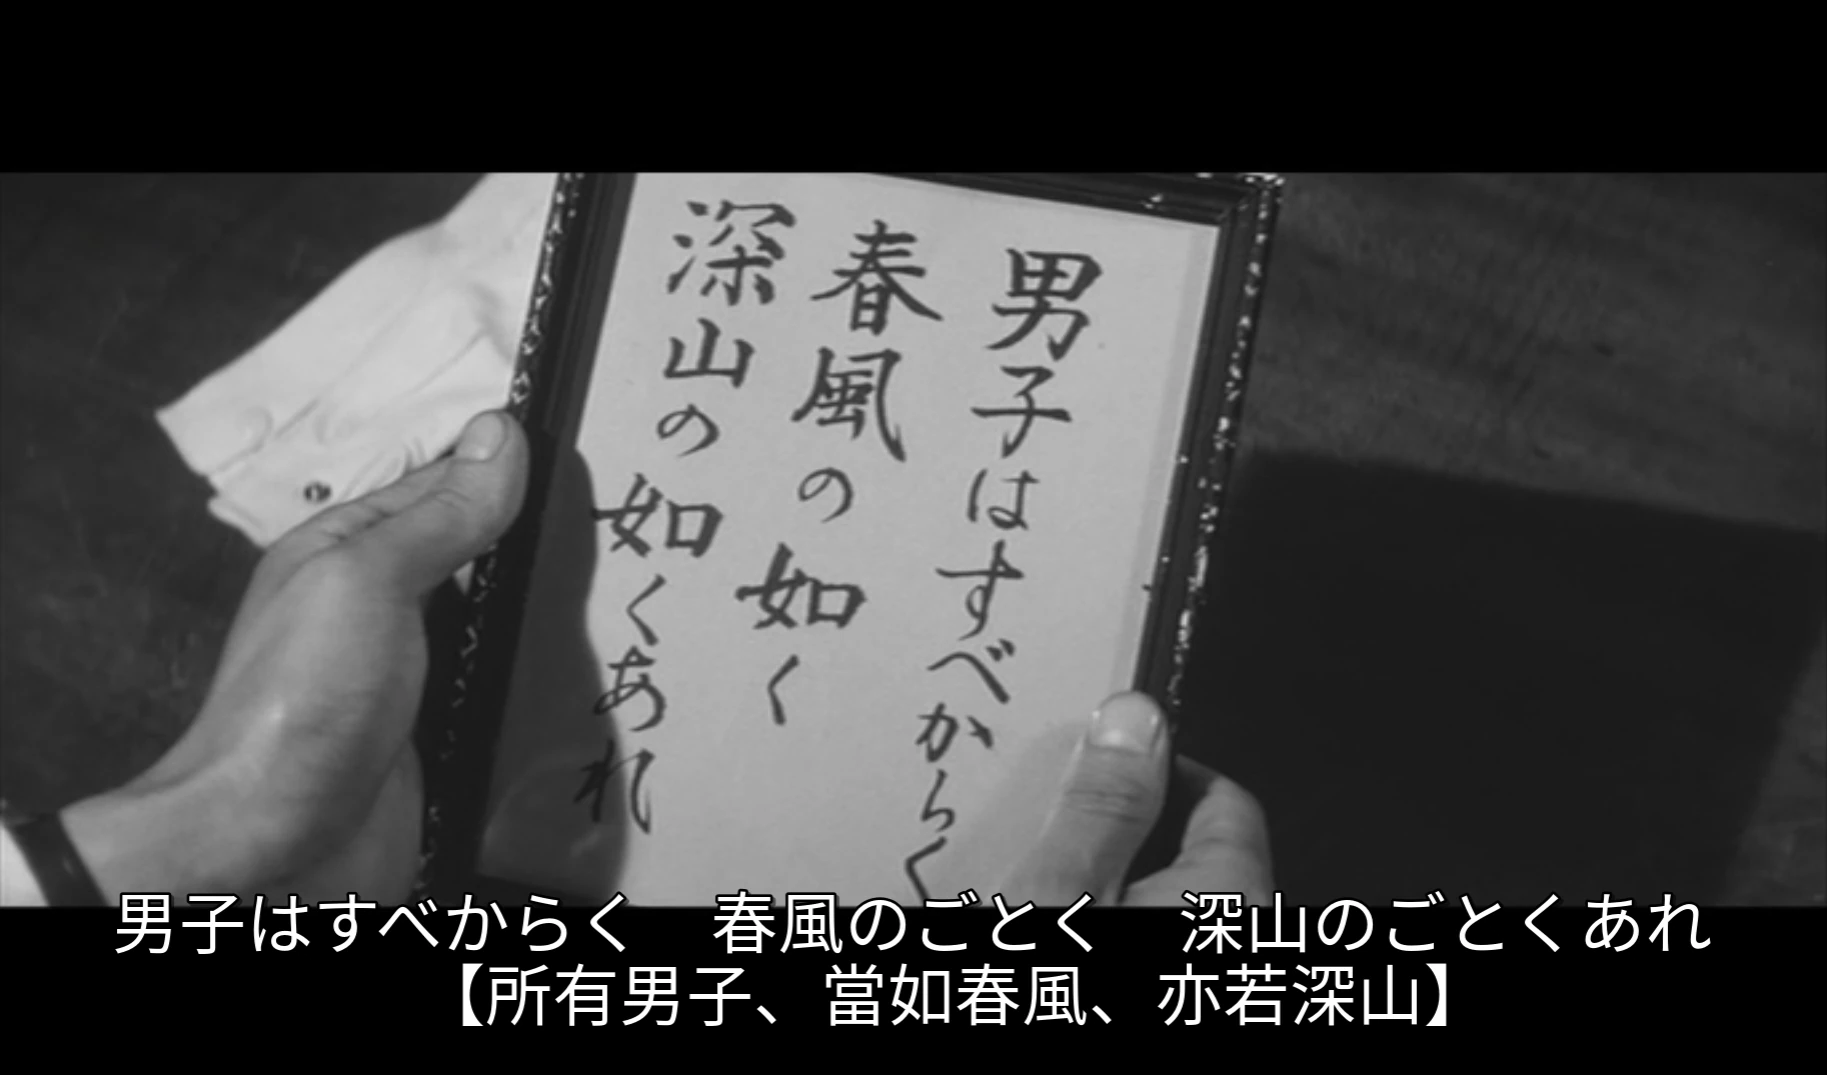 男子はすべからく
春風の如く
深山の如くあれ
男子はすべからく　春風のごとく　深山のごとくあれ
【所有男子、當如春風、亦若深山】